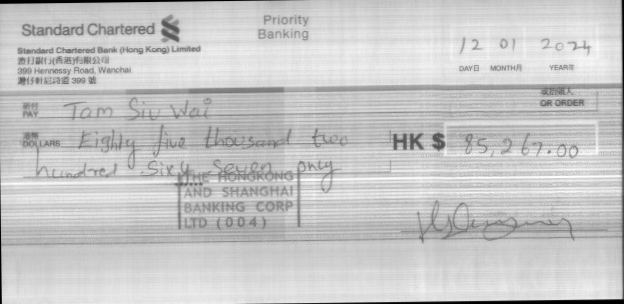 Standard Chartered
Priority
Banking
Standard Chartered Bank (Hong Kong) Limited
渣打銀行(香港)有限公司
399 Hennessy Road, Wanchai
灣仔軒尼詩道 399 號
12 01 2024
DAY日 MONTH月 YEAR年
祈付
PAY Tam Siu Wai
或抬頭人
OR ORDER
港幣
DOLLARS Eighty five thousand two
hundred Sixty Seven only
HK $ 85,267.00
THE HONGKONG
AND SHANGHAI
BANKING CORP
LTD (004)